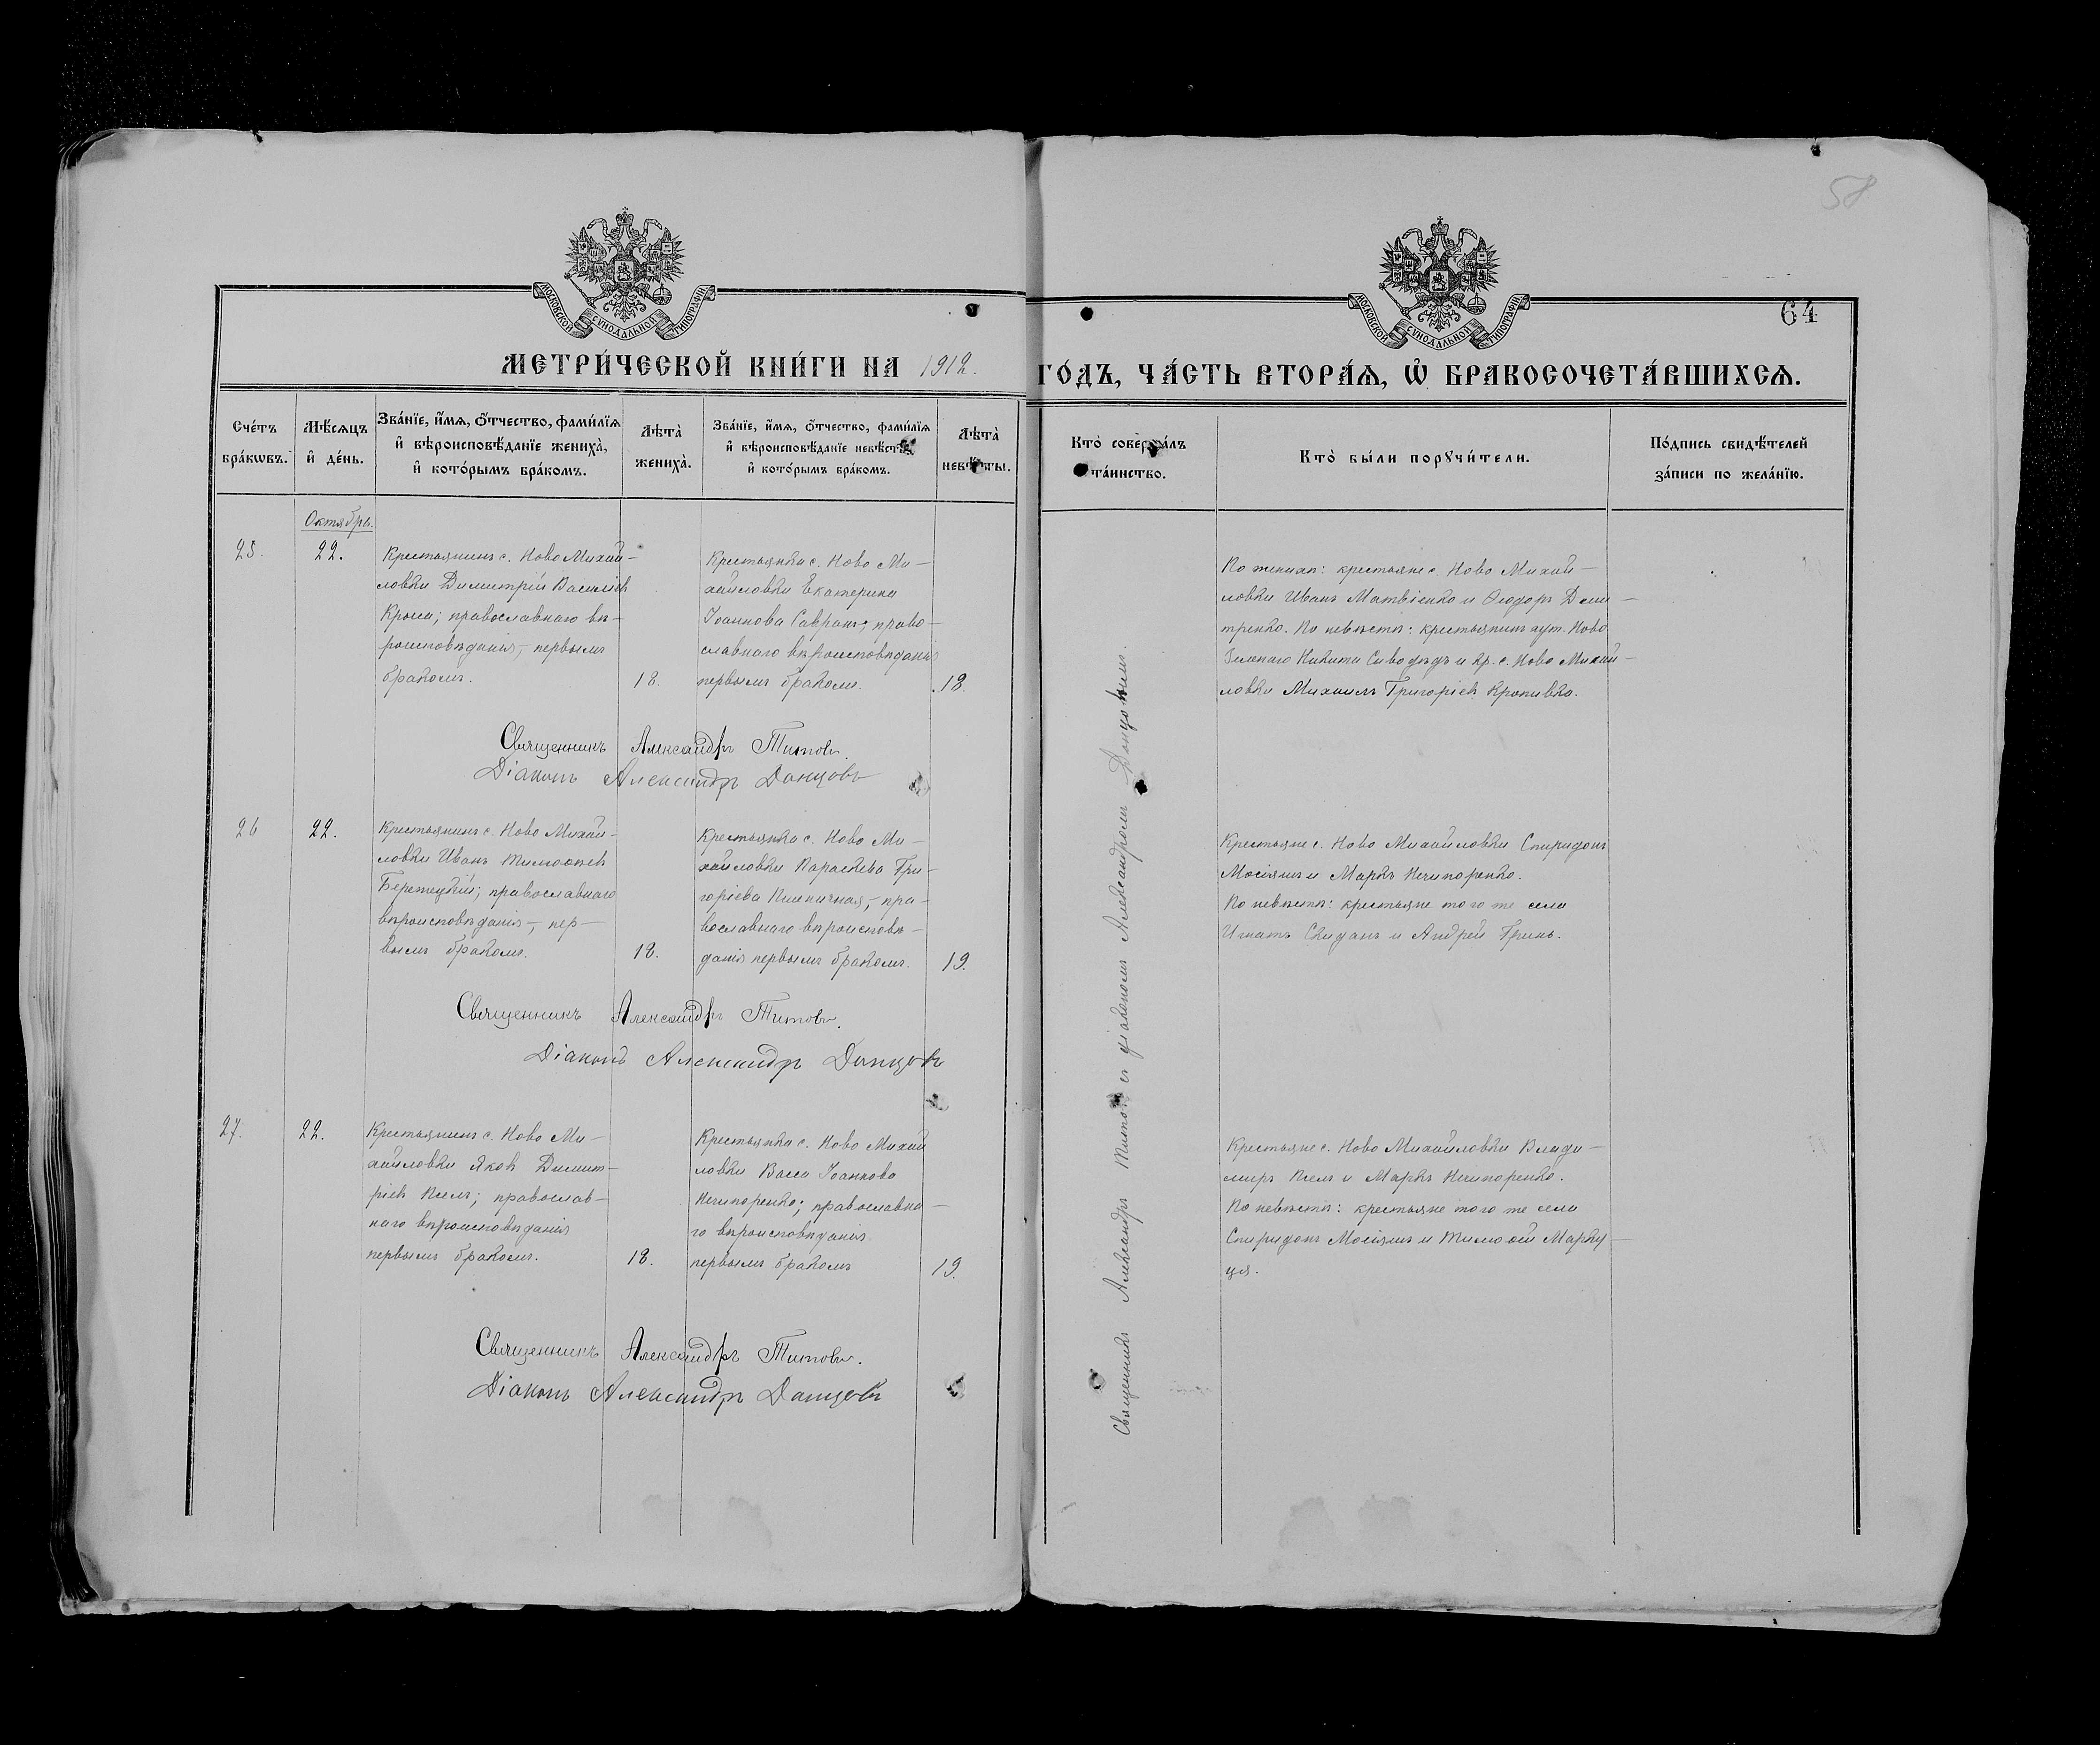 58
МОСКОВСКОЙ СѴНОДАЛЬНОЙ ТИПОГРАФІИ
МОСКОВСКОЙ СѴНОДАЛЬНОЙ ТИПОГРАФІИ
64
МЕТРИ́ЧЕСКОЙ КНИ́ГИ НА 1912.
ГО́ДЪ, ЧА́СТЬ ВТОРА́Ѧ, Ѡ҆ БРАКОСОЧЕТА́ВШИХСѦ.
Сче́тъ
бра́кѡвъ.
Мѣ́сѧцъ
и҆ де́нь.
Зва́нїе, и҆́мѧ, ѻ҆́тчество, фами́лїѧ
и҆ вѣроисповѣ́данїе жениха̀,
и҆ кото́рымъ бра́комъ.
Лѣта̀
жениха̀.
Зва́нїе, и҆́мѧ, ѻ҆́тчество, фами́лїѧ
и҆ вѣроисповѣ́данїе невѣ́сты,
и҆ кото́рымъ бра́комъ.
Лѣта̀
невѣ́сты.
Кто̀ соверша́лъ
та́инство.
Кто̀ бы́ли порꙋчи́тели.
По́дпись свидѣ́телей
за́писи по жела́нїю.
Октябрь.
25.
22.
Крестьянинъ с. Ново Михай-
ловки Димитрій Васильевъ
православнаго вѣ-
роисповѣданія, первымъ
бракомъ.
18.
Крестьянка с. Ново Ми-
хайловки Екатерина
Іоаннова Савранъ; право-
славнаго вѣроисповѣданія
первымъ бракомъ.
18.
По женихѣ: крестьяне с. Ново Михай-
ловки Иванъ Матвіенко и Ѳеодоръ Дми-
тренко. По невѣстѣ: крестьянинъ хут. Ново
Зеленаго Никита Сиводѣдъ и кр. с. Ново Михай-
ловки Михаилъ Григоріевъ Кропивка.
Священникъ Александръ Титовъ.
Діаконъ Александръ Донцовъ
26
22.
Крестьянинъ с. Ново Михай-
ловки Иванъ Тимоѳеевъ
Бережецкій; православнаго
вѣроисповѣданія, пер-
вымъ бракомъ.
18.
Крестьянка с. Ново Ми-
хайловки Параскева Гри-
горіева Пшеничная, пра-
вославнаго вѣроисповѣ-
данія первымъ бракомъ.
19.
Крестьяне с. Ново Михайловки Спиридонъ
Мосіяшъ и Маркъ Нечипоренко.
По невѣстѣ: крестьяне того же села
Игнатъ Скиданъ и Андрей Гринь.
Священникъ Александръ Титовъ.
Діаконъ Александръ Донцовъ
27.
22.
Крестьянинъ с. Ново Ми-
хайловки Яковъ Димит-
ріевъ Псёлъ; православ-
наго вѣроисповѣданія
первымъ бракомъ.
18.
Крестьянка с. Ново Михай
ловки Васса Іоаннова
Нечипоренко; православна-
го вѣроисповѣданія
первымъ бракомъ
19.
Крестьяне с. Ново Михайловки Влади-
миръ Псёлъ и Маркъ Нечипоренко.
По невѣстѣ: крестьяне того же села
Спиридонъ Мосіяшъ и Тимоѳей Марку-
ця.
Священникъ Александръ Титовъ.
Діаконъ Александръ Донцовъ
Священникъ Александръ Титовъ съ діакономъ Александромъ Донцовымъ.